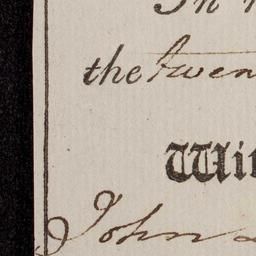 In
the twen
Wit
John